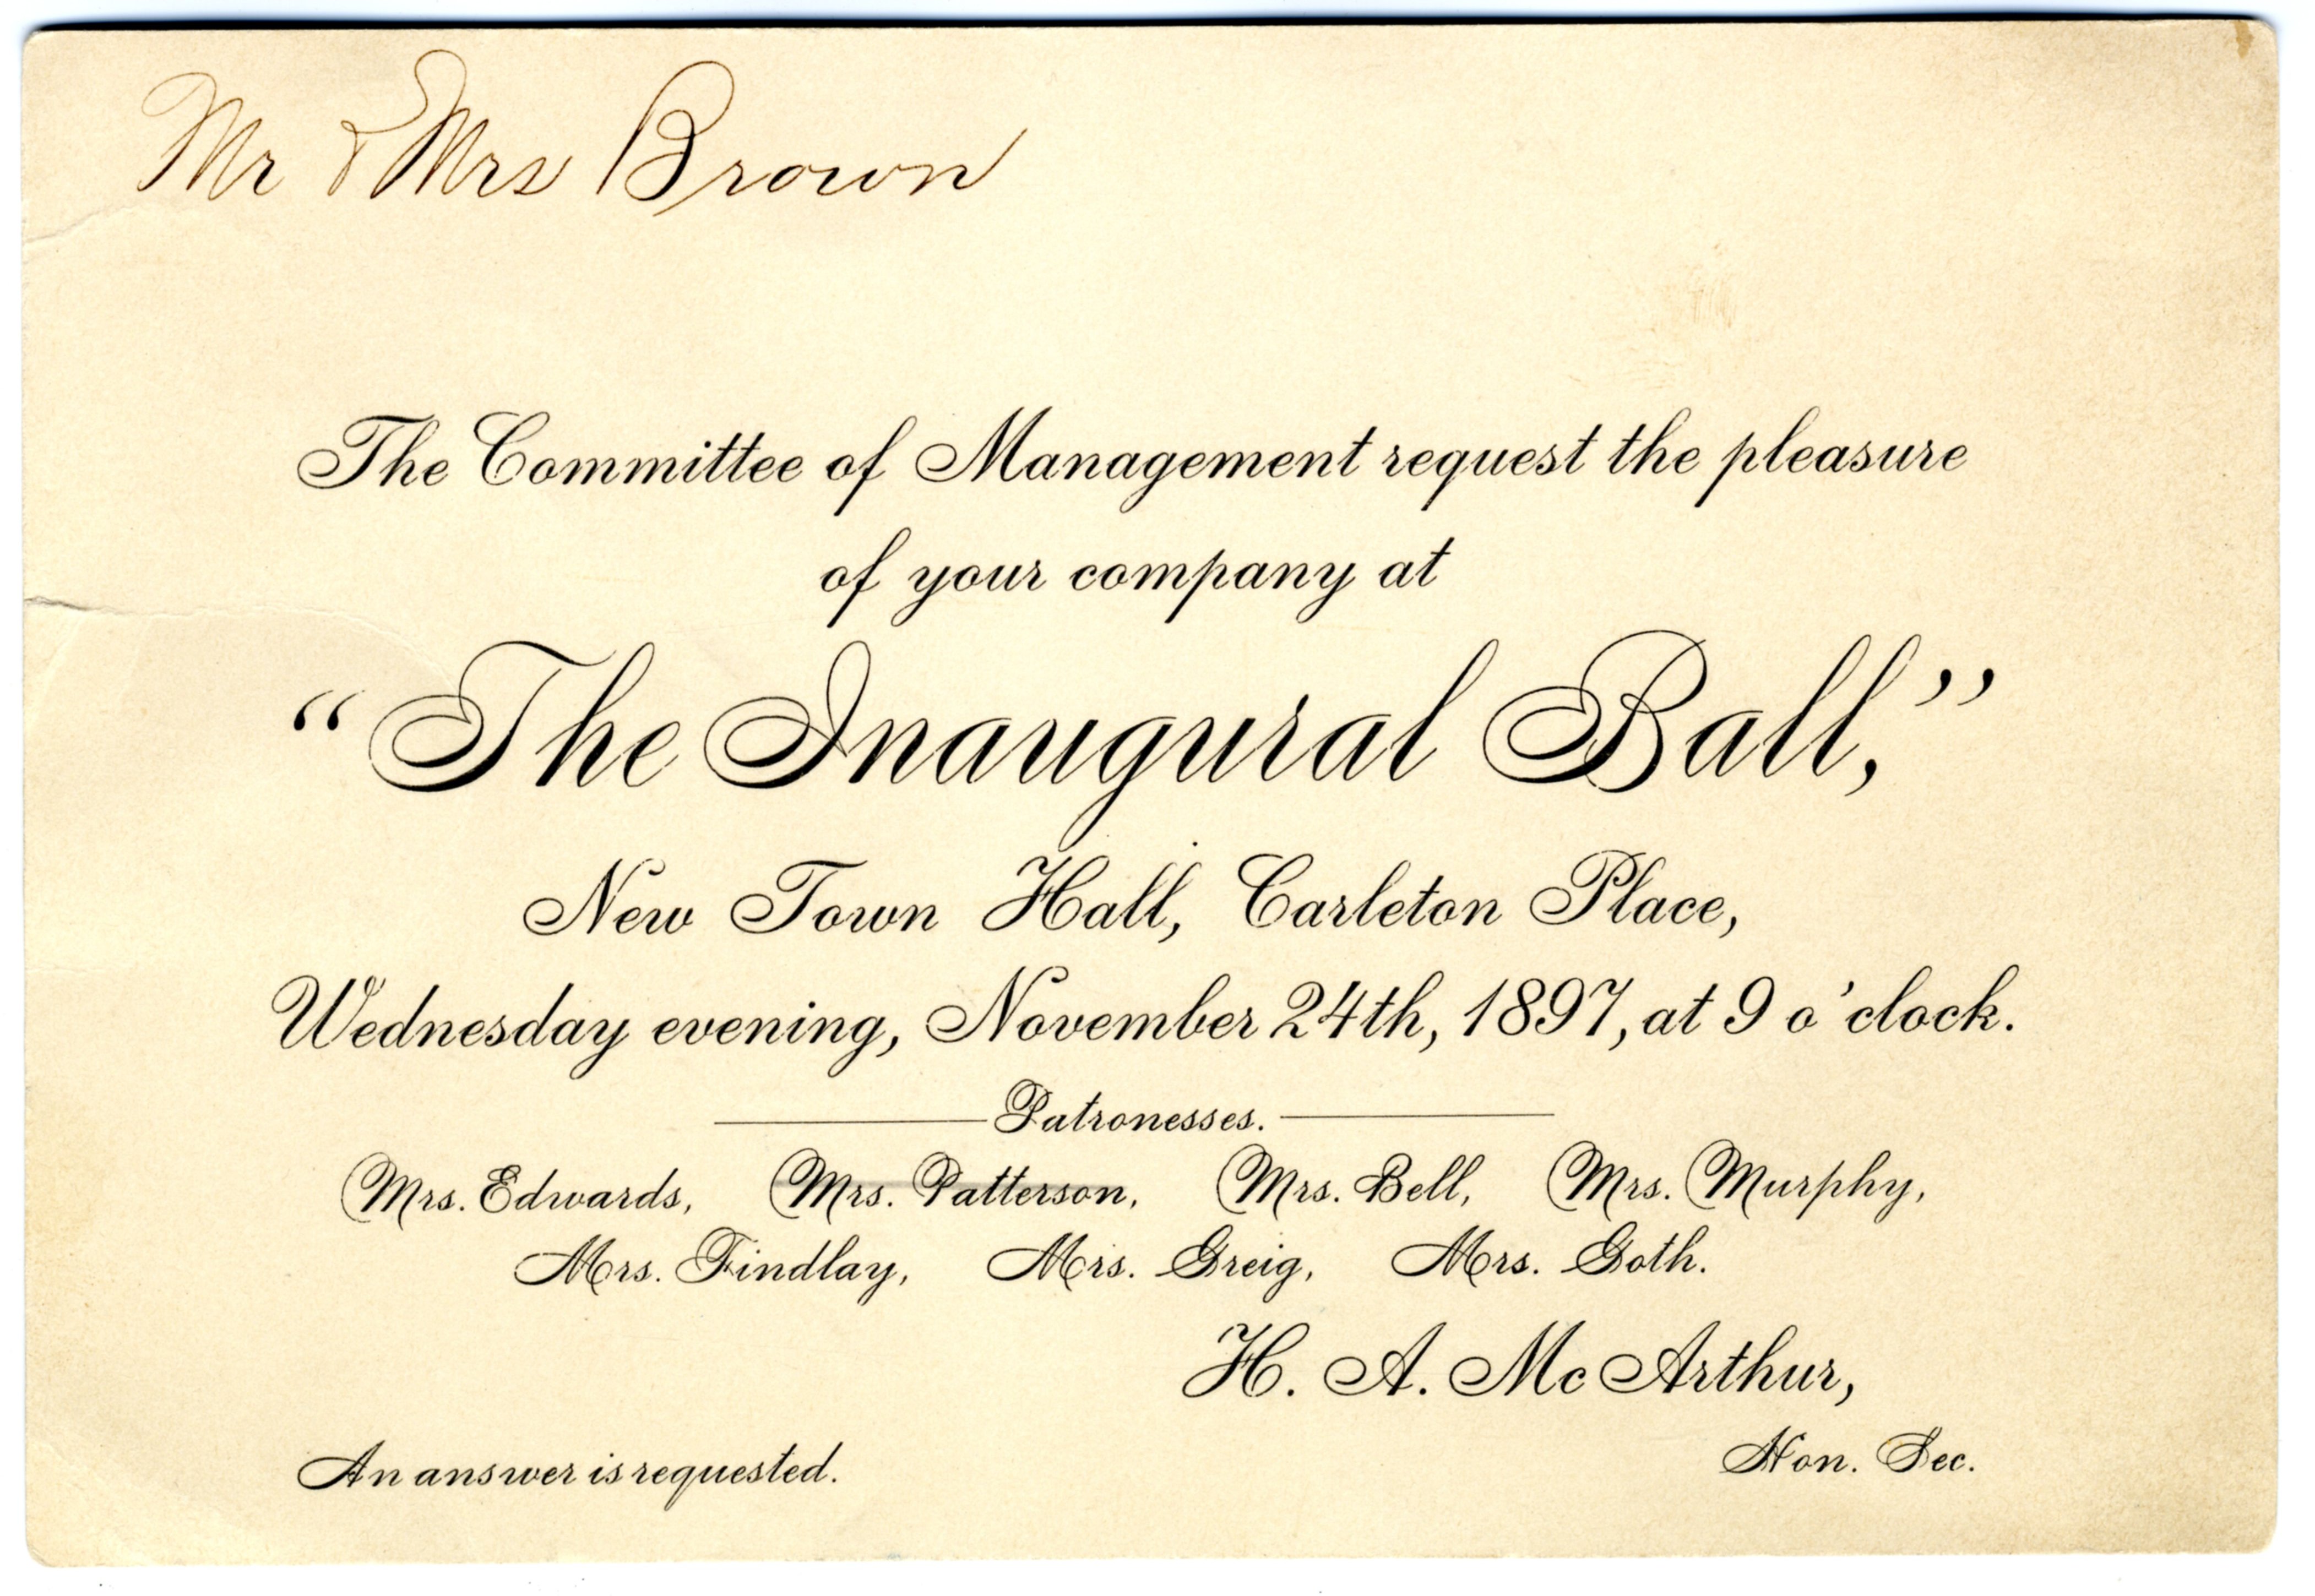 Mr & Mrs Brown
The Committee of Management request the pleasure
of your company at
“The Inaugural Ball,”
New Town Hall, Carleton Place,
Wednesday evening, November 24th, 1897, at 9 o'clock.
Patronesses.
Mrs. Edwards, Mrs. Patterson, Mrs. Bell, Mrs. Murphy,
Mrs. Findlay, Mrs. Greig, Mrs. Goth.
H. A. McArthur,
Hon. Sec.
An answer is requested.